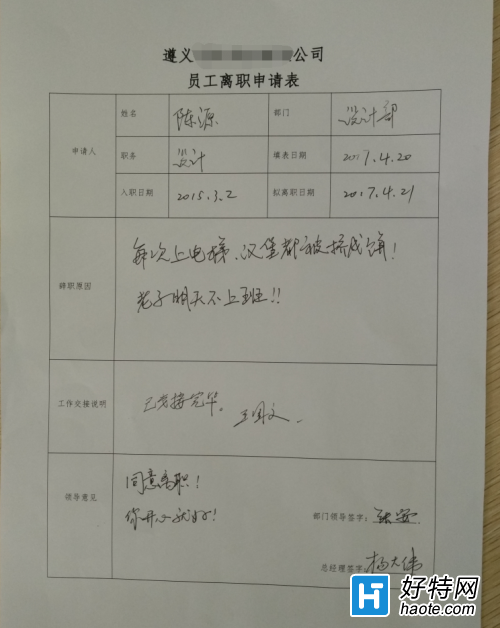 遵义 公司
员工离职申请表
申请人
姓名 陈源 部门 设计部
职务 设计 填表日期 2017.4.20
入职日期 2015.3.2 拟离职日期 2017.4.21
辞职原因
每次上电梯、汉堡都被挤成饼!
老子明天不上班!!
工作交接说明
已交接完毕。
王国文.
领导意见
同意离职!
你开心就好!
部门领导签字: 张
总经理签字: 杨大伟
好特网
haote.com